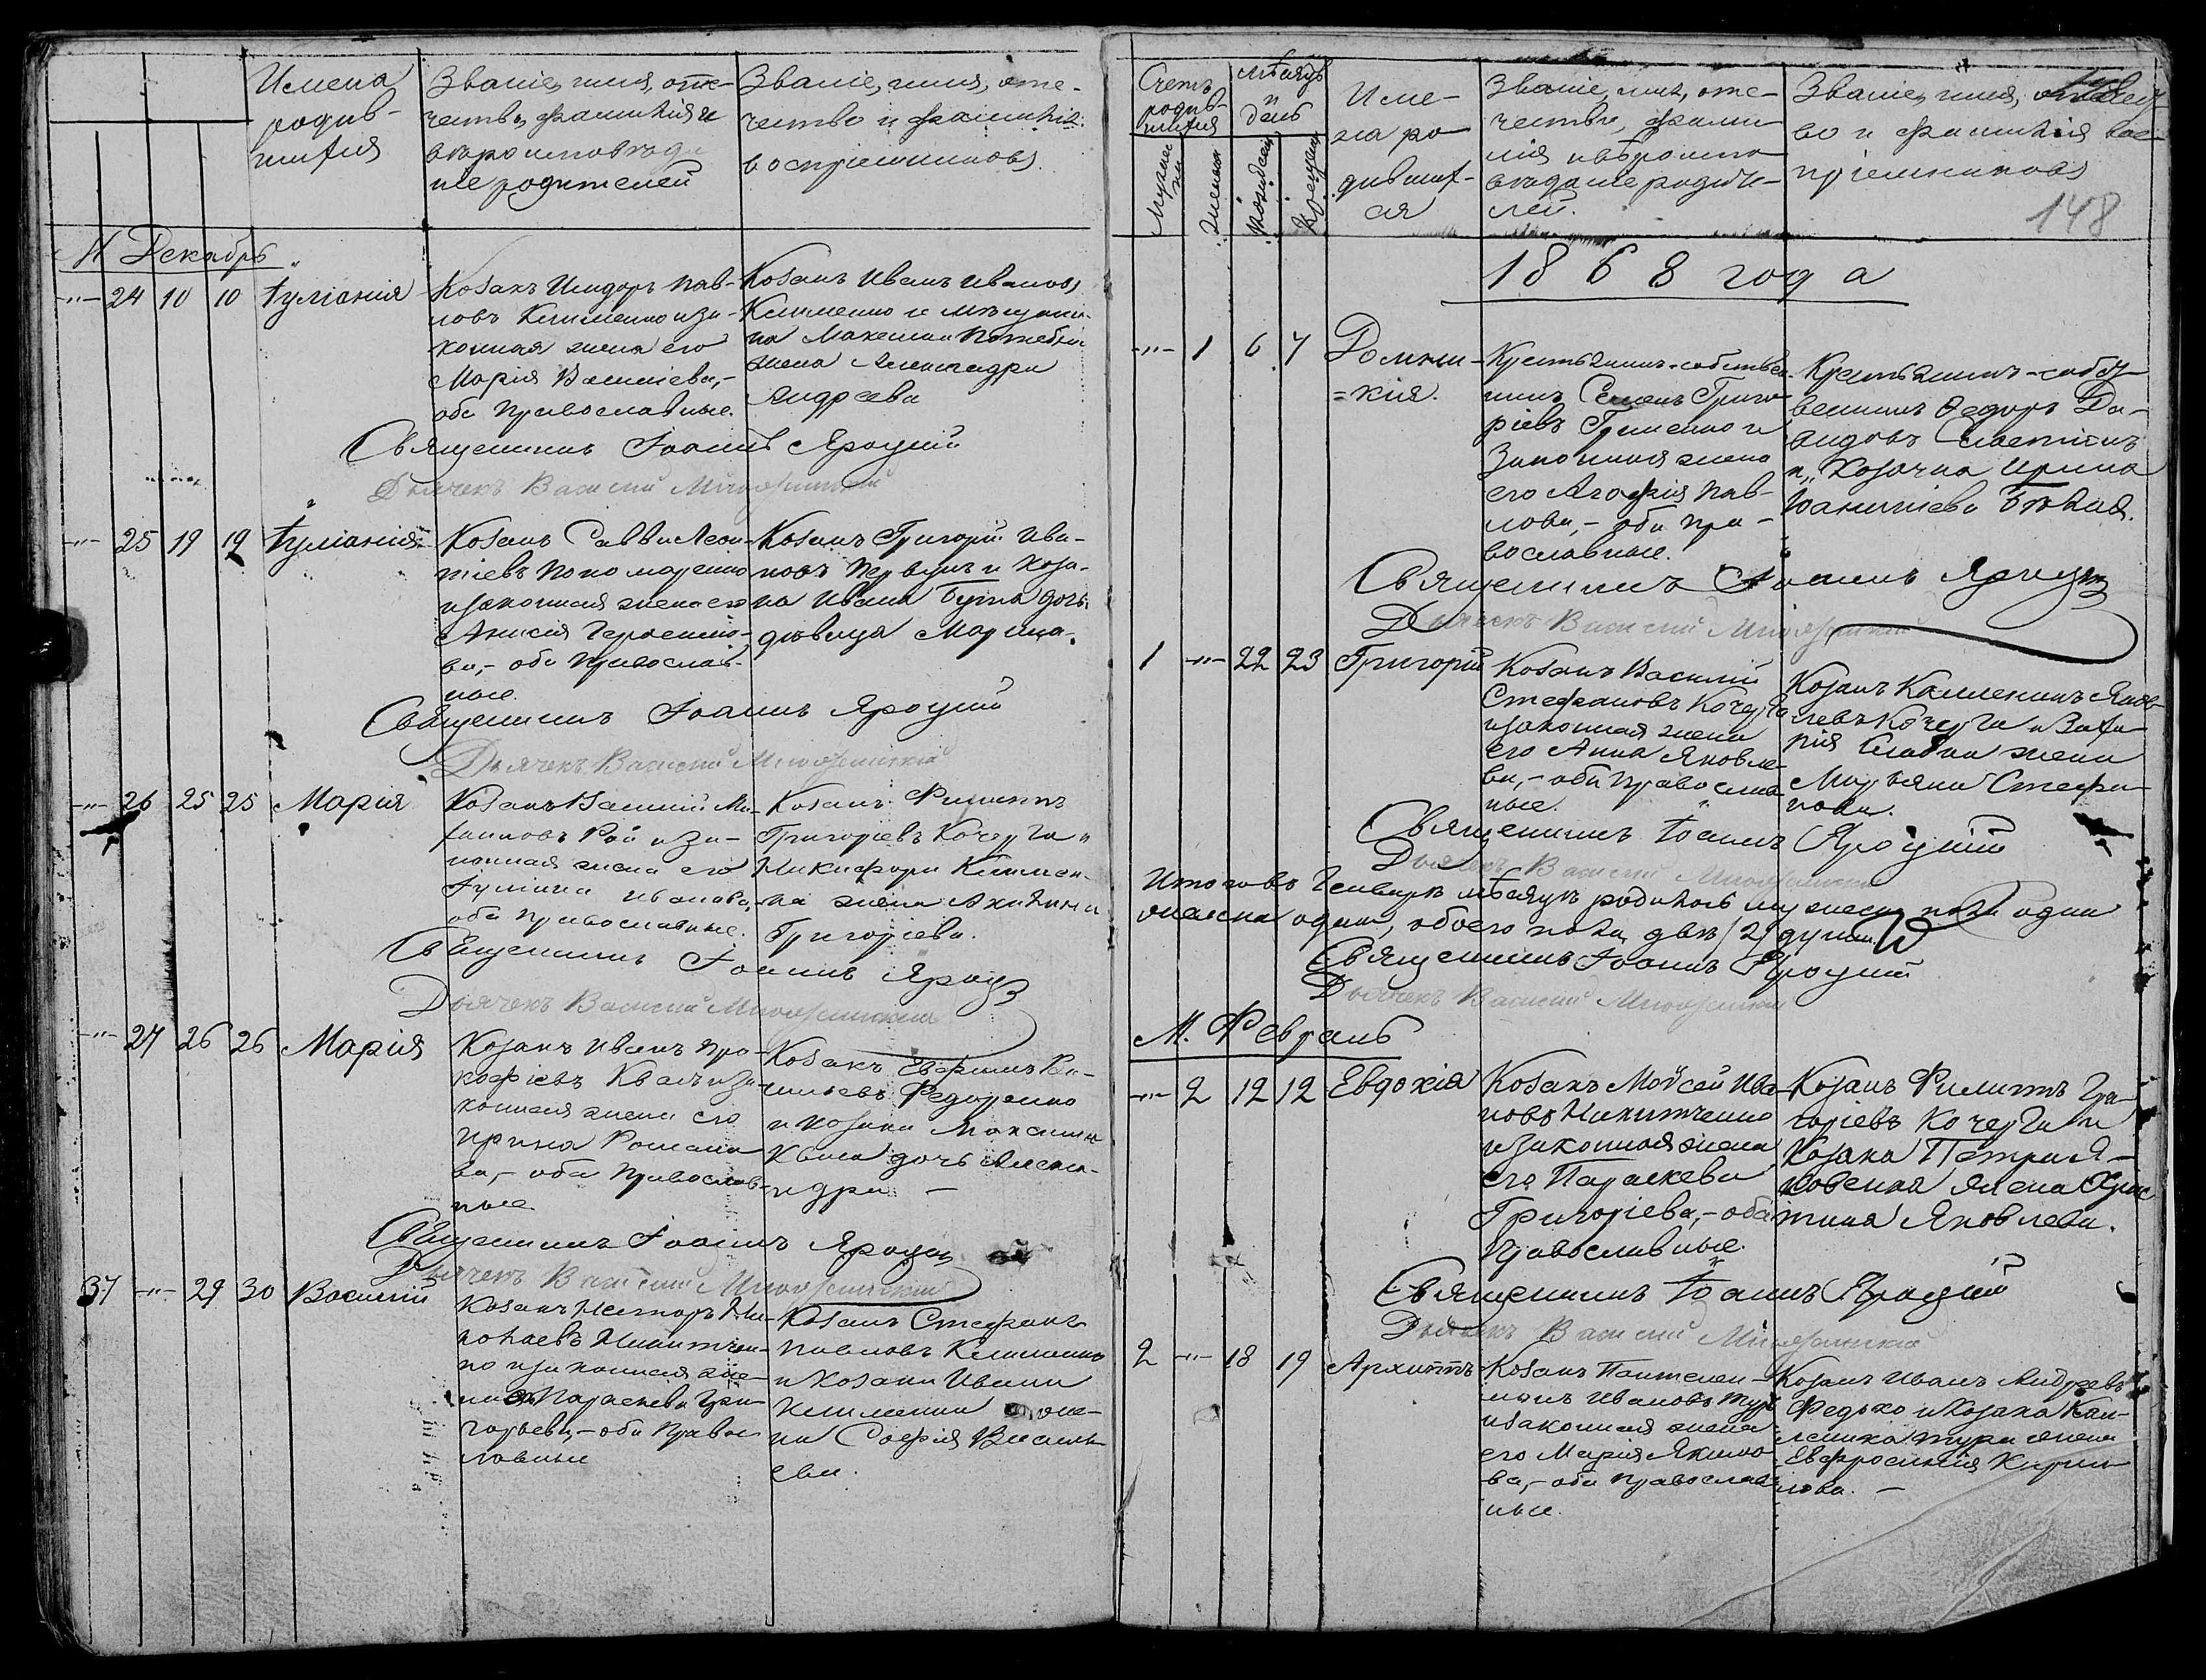 Имена
родив-
шихся
Званіе, имя, оте-
чество, фамилія и
вѣроисповѣда-
ніе родителей
Званіе, имя, оте-
чество и фамилія
воспріемниковъ
М Декабрь
-"- 24 10 10 Іуліанія
Козакъ Исидоръ Пав-
ловъ Клименко и за-
конная жена его
Марія Василіева,-
оба Православные.
Козакъ Иванъ Ивановъ
Клименко и мѣщани-
на Максима Потебни
жена Александра
Андреева
Священникъ Іоаннъ Яроцкій
Дьячекъ Василій
-"- 25 19 19 Іуліанія
Козакъ Савва Леон-
тіевъ Пономаренко
и законная жена его
Анисія Герасимо-
ва,- оба Православ-
ные.
Козакъ Григорій Ива-
новъ Первунъ и Коза-
ка Ивана Бута дочь
дѣвица Марина.
Священникъ Іоаннъ Яроцкій
Дьячекъ Василій
-"- 26 25 25 Марія
Козакъ Василій Ми-
хаиловъ Рой и за-
конная жена его
Іуліана Иванова,
оба Православные.
Козакъ Филиппъ
Григоріевъ Кочерга и
Никифора Климен-
ка жена Акилина
Григоріева.
Священникъ Іоаннъ Яроцкій
Дьячекъ Василій
-"- 27 26 26 Марія
Козакъ Иванъ Про-
кофіевъ Квашъ и за-
конная жена его
Ирина Романо-
ва,- оба Православ-
ные
Козакъ Евфимъ Ва-
сильевъ Федоренко
и козака Максима
Кваша дочь Алекса-
ндра -
Священникъ Іоаннъ Яроцкій
Дьячекъ Василій
37 -"- 29 30 Василій
Козакъ Несторъ Ни-
колаевъ Никитчен-
ко и законная же-
на его Параскева Гри-
горьева,- оба Право-
славные
Козакъ Стефанъ
Павловъ Клименко
и Козака Ивана
Клименка же-
на Софія Василь-
ева.
Счетъ
родив-
шихся
Мѣсяцъ
и
день
Мужеска
Женска
Рожденія
Крещенія
Име-
на ро-
дивших-
ся
Званіе, имя, оте-
чество, фами-
лія и вѣроиспо-
вѣданіе родите-
лей.
Званіе, имя, отчест-
во и фамилія вос-
пріемниковъ
148
1868 года
-"- 1 6 7 Домни-
=кія.
Крестьянинъ-собствен-
никъ Семенъ Григо-
ріевъ Гриненко и
Законная жена
его Агафія Пав-
лова,- оба Пра-
вославные.
Крестьянинъ-собст-
венникъ Федоръ Да-
видовъ Сластіонъ
и Козачка Ирина
Іоанникіева Бѣлая.
Священникъ Іоаннъ Яроцкій
Дьячекъ Василій
1 -"- 22 23 Григорій
Козакъ Василій
Стефановъ Кочерга
и законная жена
его Анна Яковле-
ва,- оба Православ-
ные.
Козакъ Каленикъ Яков-
левъ Кочерга и Заха-
рія Слабка жена
Марьяна Стефа-
нова.
Священникъ Іоаннъ Яроцкій
Дьячекъ Василій
Итого въ Генварѣ мѣсяцѣ родилось мужеска пола одна
женска одна, обоего пола двѣ /2/ души.
Священникъ Іоаннъ Яроцкій
Дьячекъ Василій
М. Февраль
-"- 2 12 12 Евдокія
Козакъ Моѵсей Ива-
новъ Никитченко
и законная жена
его Параскева
Григоріева,- оба
Православные.
Козакъ Филиппъ Гри-
горіевъ Кочерга и
Козака Петра Я-
ковенка жена Хрис-
тина Яковлева.
Священникъ Іоаннъ Яроцкій
Дьячекъ Василій
2 -"- 18 19 Архиппъ
Козакъ Пантелеи-
монъ Ивановъ Тура
и законная жена
его Марія Якимо-
ва,- оба Православ-
ные.
Козакъ Иванъ Андреевъ
Федько и Козака Кал-
леника Тура жена
Евфросинія Кири-
лова. -